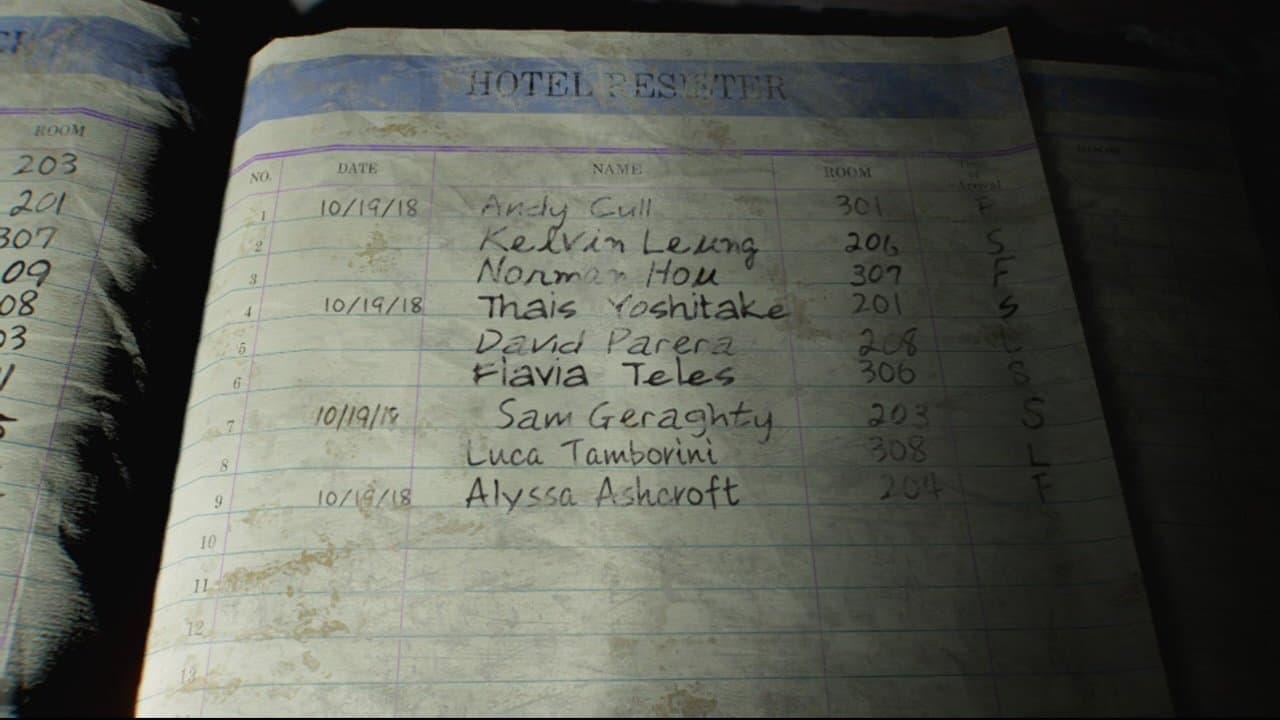 ROOM
203
201
307
09
08
03
HOTEL RESISTER
NO. DATE NAME ROOM Arrival
1 10/19/18 Andy Cull 301 F
2 Kelvin Leung 206 S
3 Norman Hou 307 F
4 10/19/18 Thais Yoshitake 201 S
5 David Parera 208 L
6 Flavia Teles 306 S
7 10/19/18 Sam Geraghty 203 S
8 Luca Tamborini 308 L
9 10/19/18 Alyssa Ashcroft 204 F
10
11
12
13
ROOM